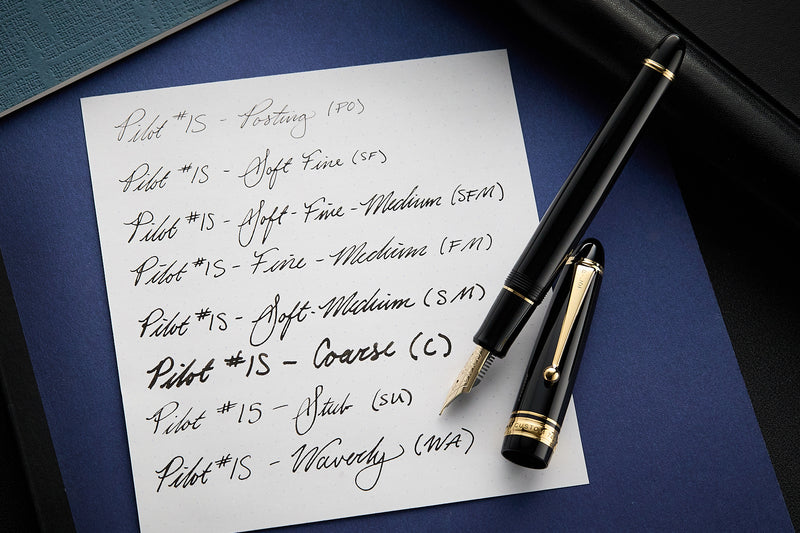 Pilot #15 - Posting (PO)
Pilot #15 - Soft Fine (SF)
Pilot #15 - Soft-Fine-Medium (SFM)
Pilot #15 - Fine-Medium (FM)
Pilot #15 - Soft-Medium (SM)
Pilot #15 - Coarse (C)
Pilot #15 - Stub (SU)
Pilot #15 - Waverly (WA)
CUSTOM